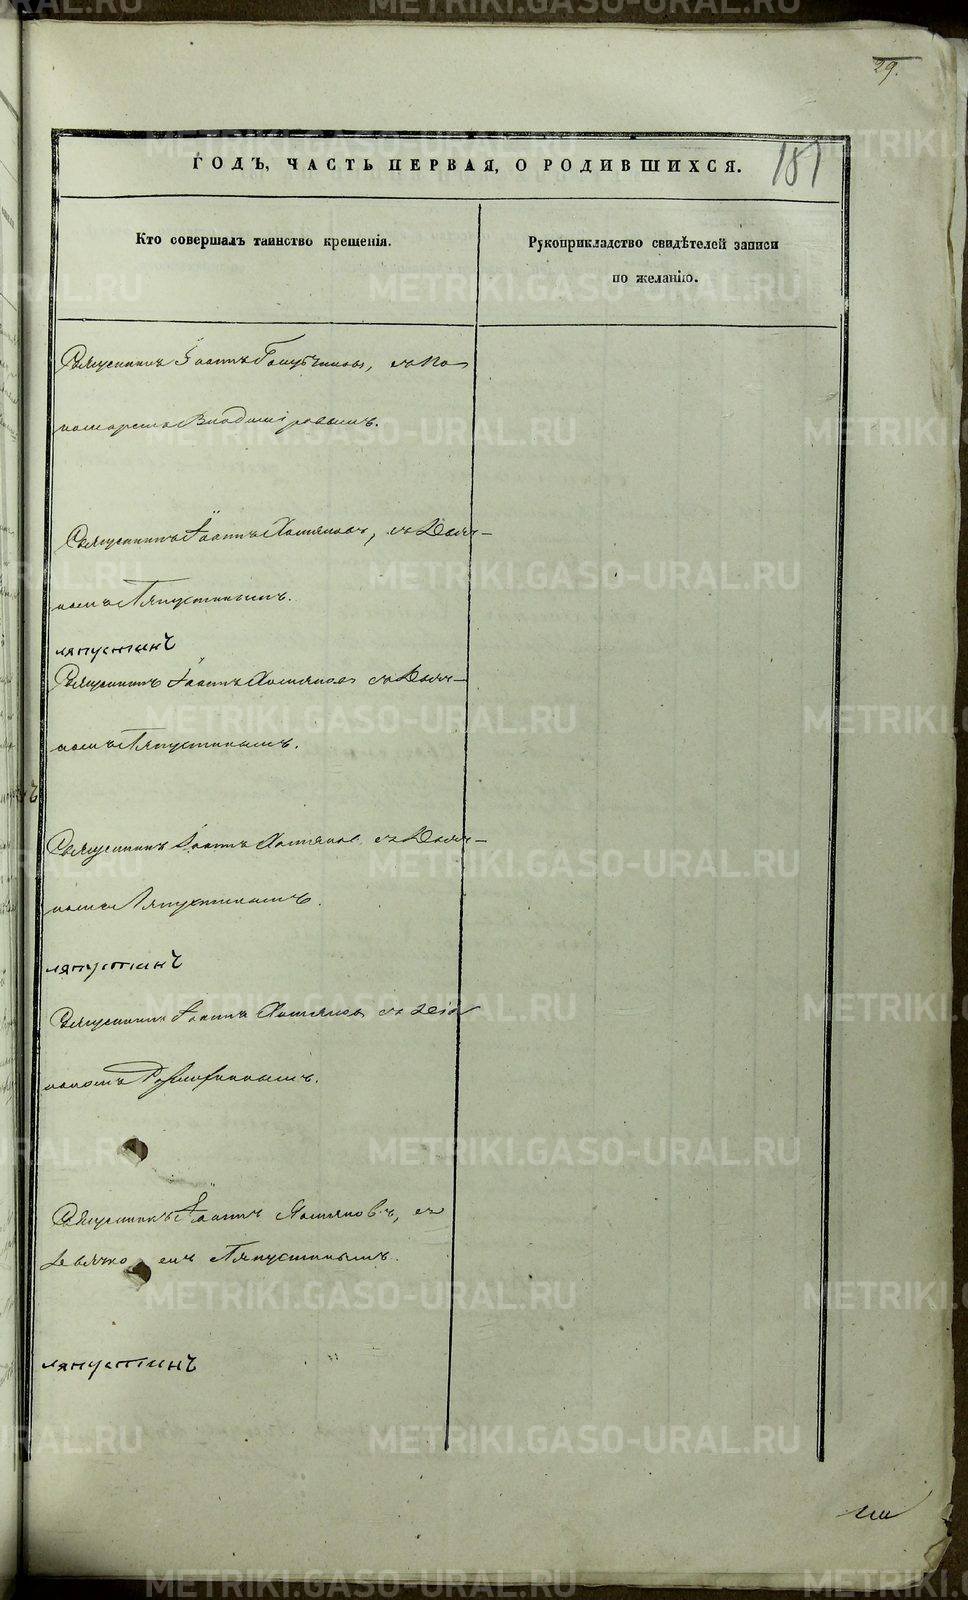 29.
181
ГОДЪ, ЧАСТЬ ПЕРВАЯ, О РОДИВШИХСЯ.
Кто совершалъ таинство крещенія.
Рукоприкладство свидѣтелей записи
по желанію.
Священникъ Іоаннъ съ По
номаремъ Владиміровымъ.
Священникъ Іоаннъ Хомяковъ, съ Дьяч-
комъ Ляпустинымъ.
ляпустинъ
Священникъ Іоаннъ Хомяковъ съ Дьяч-
комъ Ляпустинымъ.
Священникъ Іоаннъ Хомяковъ съ Дьяч-
комъ Ляпустинымъ.
ляпустинъ
Священникъ Іоаннъ Хомяковъ съ Діа
кономъ
Священникъ Іоаннъ Хомяковъ, съ
Дьячкомъ Ляпустинымъ.
ляпустинъ
METRIKI.GASO-URAL.RU